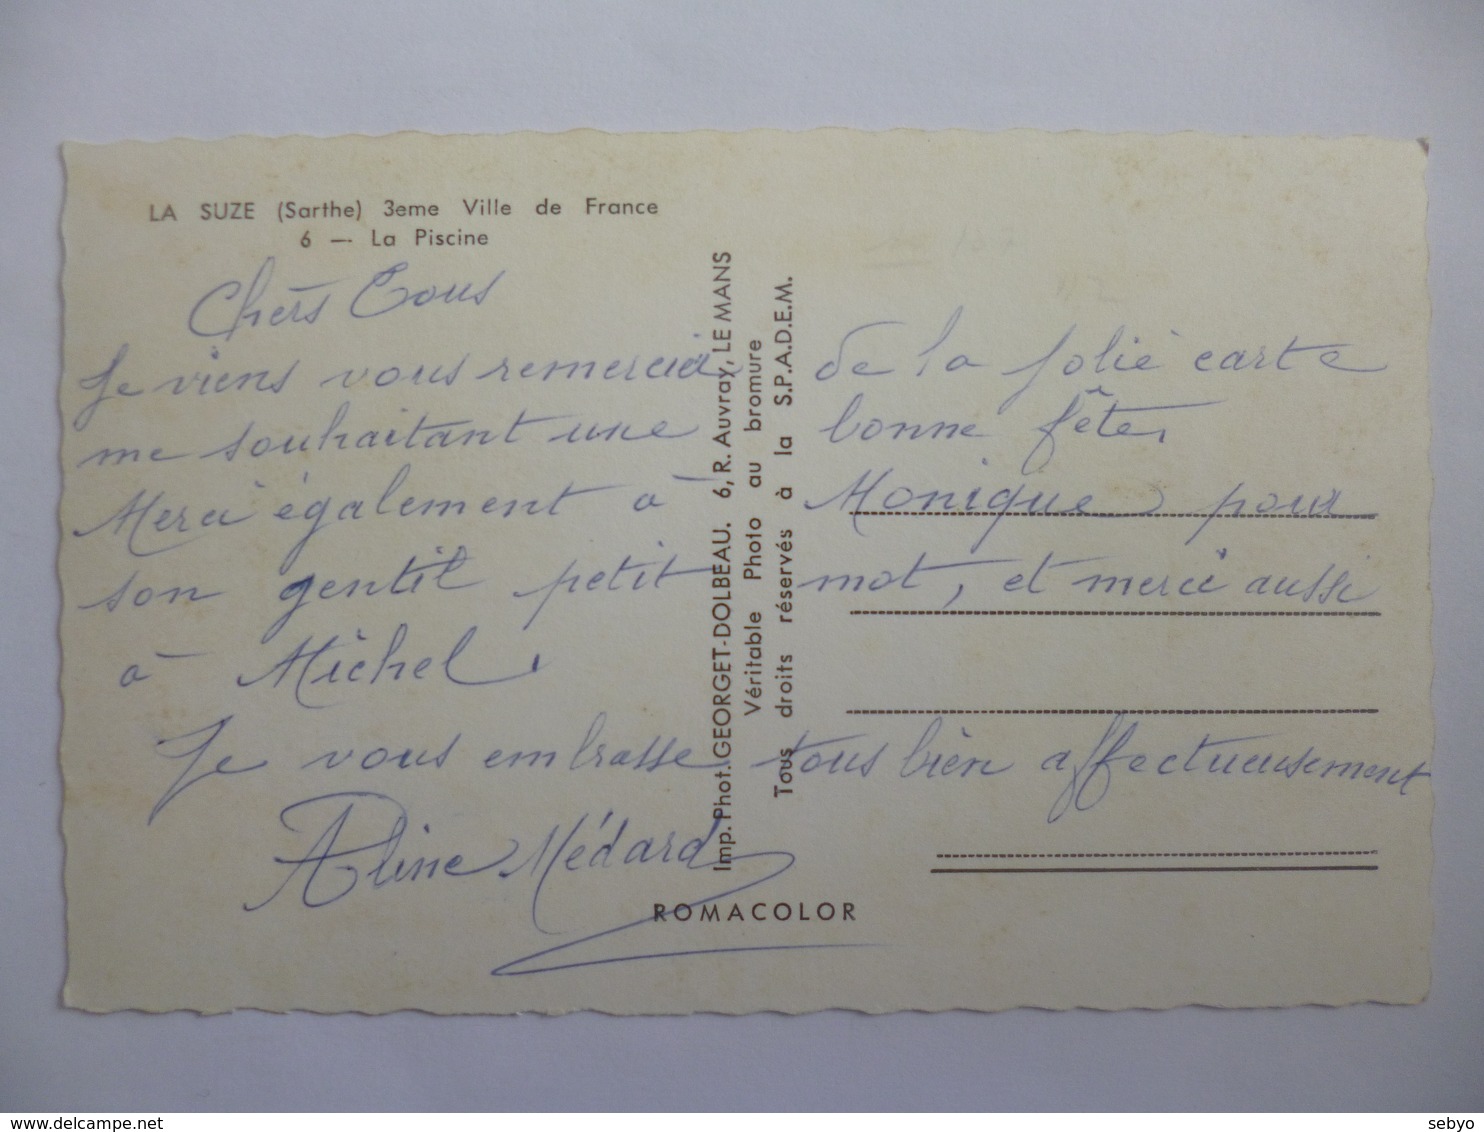 LA SUZE (Sarthe) 3eme Ville de France
6 — La Piscine
Chers Tous
Je viens vous remercier de la jolie carte
me souhaitant une bonne fête,
Merci également à Monique pour
son gentil petit mot, et merci aussi
à Michel.
Je vous embrasse tous bien affectueusement
Aline Médard
Imp. Phot. GEORGET-DOLBEAU. 6, R. Auvray, LE MANS
Véritable Photo au bromure
Tous droits réservés à la S.P.A.D.E.M.
ROMACOLOR
delcampe.net
sebyo